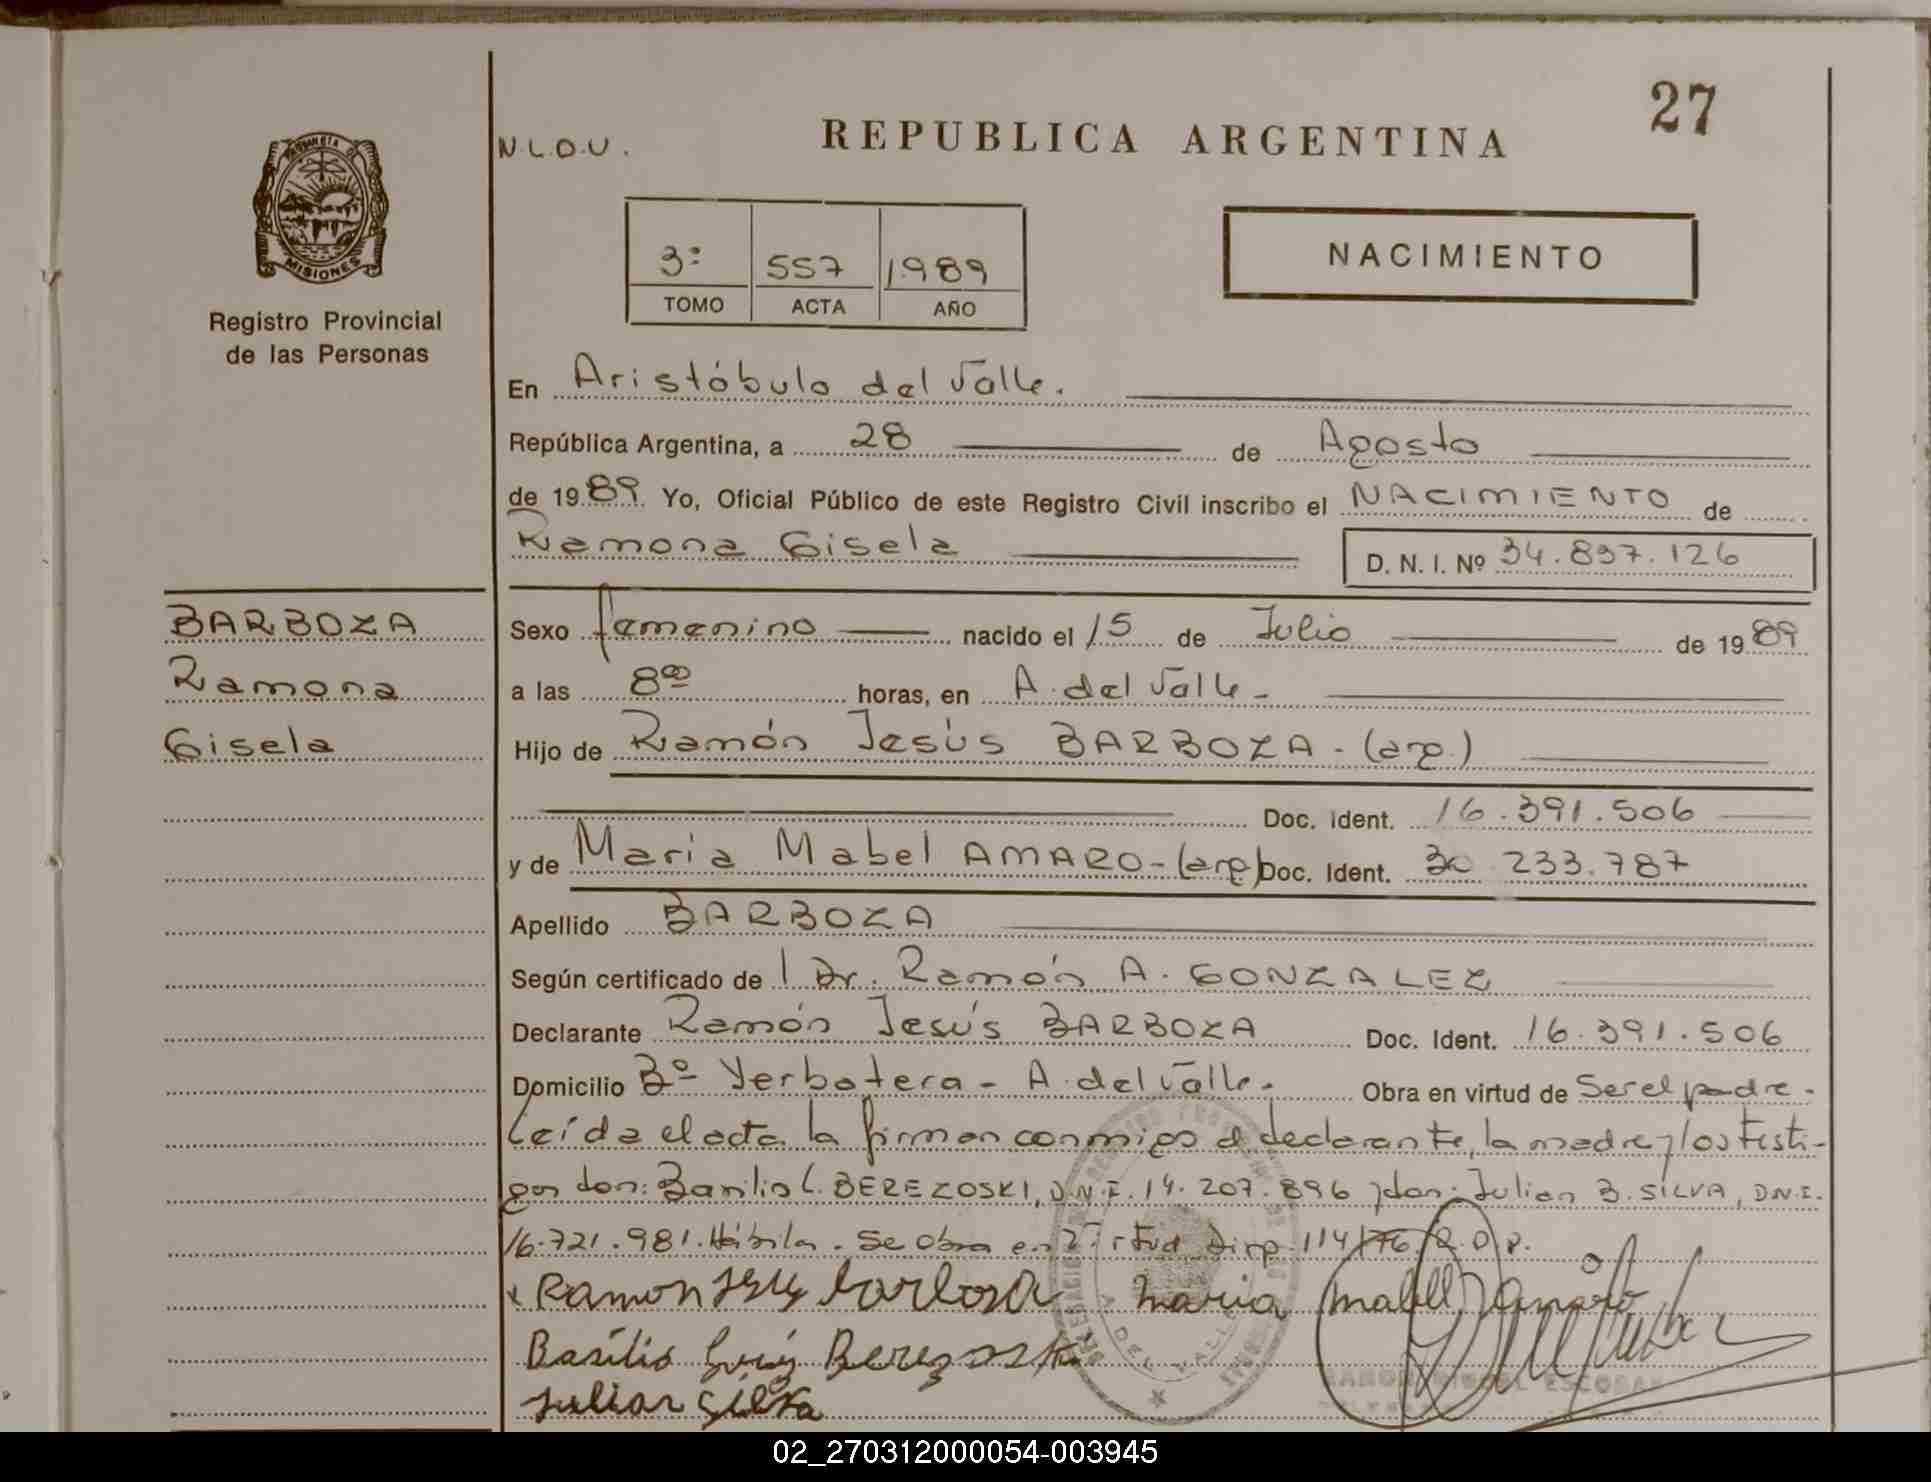 27
N.L.O.U.
REPUBLICA ARGENTINA
MISIONES
Registro Provincial
de las Personas
3º 557 1989
TOMO ACTA AÑO
NACIMIENTO
En Aristóbulo del Valle.
República Argentina, a 28 de Agosto
de 1989 Yo, Oficial Público de este Registro Civil inscribo el NACIMIENTO de
Ramona Gisela D. N. I. Nº 34.897.126
BARBOZA
Ramona
Gisela
Sexo femenino nacido el 15 de Julio de 1989
a las 8⁰⁰ horas, en A. del Valle -
Hijo de Ramón Jesús BARBOZA - (arg.)
Doc. Ident. 16.391.506
y de Maria Mabel AMARO - (arg.) Doc. Ident. 30 233.787
Apellido BARBOZA
Según certificado de l Dr. Ramón A. GONZALEZ
Declarante Ramón Jesús BARBOZA Doc. Ident. 16.391.506
Domicilio Bº Yerbatera - A. del Valle. Obra en virtud de Ser el padre.
Leída el acta la firman conmigo el declarante, la madre y los testi-
gos don: Basilio L. BEREZOSKI, D.N.I. 14.207.896 y don: Julian B. SILVA, D.N.I.
16.721.981. Hábiles. Se obra en virtud Disp. 114/76 R.D.P.
Ramon Jesus barbosa Maria Mabel Amaro
Basilio Luis Berezoski
Julian Silva
RAMON MIGUEL ESCOBAR
02_270312000054-003945